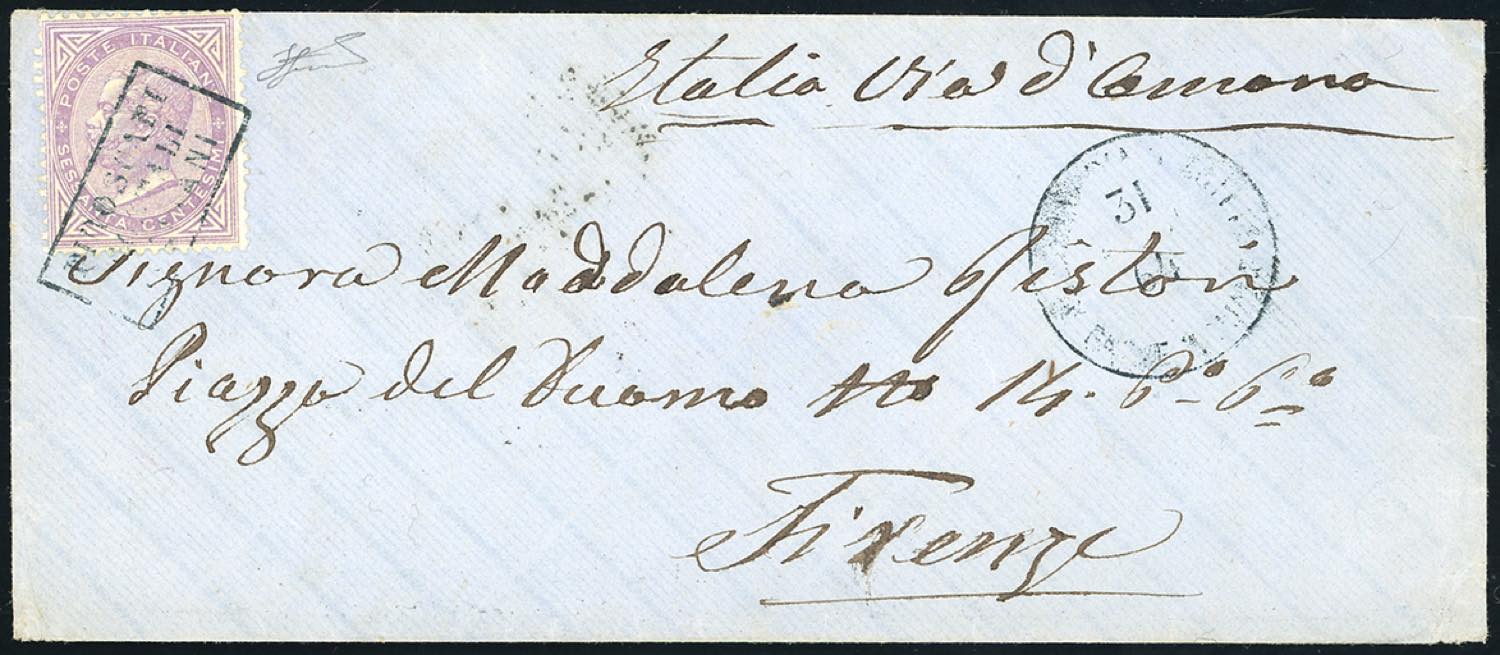 POSTE ITALIANE
SESSANTA CENTESIMI
PIROSCAFI
ANI
Italia Via d'Ancona
31
Signora Maddalena Piston
Piazza del Duomo No 14. 6º 6º
Firenze